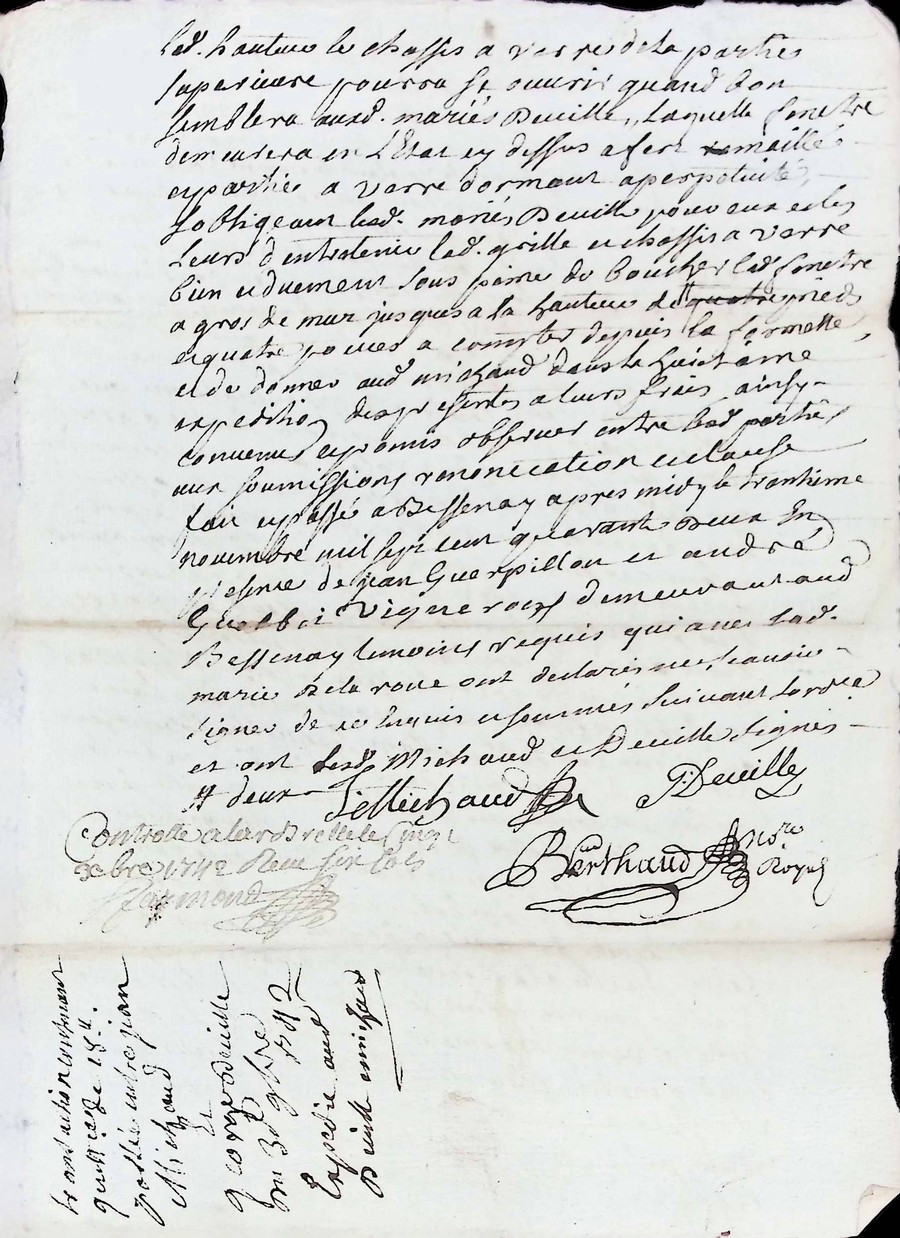 lad. hauteur le chassis a verre de la partie
superieure pourra se ouvrir quand bon
semblera auxd. mariés Deville, laquelle fenetre
demeurera en l'Etat cy dessus a fert maillé
et partie a verre dormant a perpetuité,
sobligeant lesd. mariés Deville pour eux et les
leurs d'entretenir lad. grille et chassis a verre
bien et duement sous peine de boucher lad. fenetre
a gros de mur jusques a la hauteur de quatre pieds
et quatre pouces a compter depuis la formette,
et de donner aud. michaud dans la huictaine
expedition des presentes a leurs frais ainsy
convenu et promis observer entre lesd. parties
aux soumissions renonciation et clause
fait et passé a Bessenay apres midy le trantieme
novembre mil sept cent quarante Deux En
presence de jean Guerpillon et andré
vignerons demeurant aud.
Bessenay temoins requis qui avec lad.
marie Delaroue ont declarés ne scavoir
signer de ce enquis et sommés suivant lordce
et ont lesd. Michaud et Deville signés
# deux
J Michaud
J: Deville
Controllé a larBrelle le Cinq
Xbre 1742 Recu six sols
Raymond
Berthaud Nore
Royal
transaction contenant
quittance de 15ll.
passée entre jean
Michaud
Et
george deville
Du 30 9bre
1742
Expedié aud.
Deville michaud